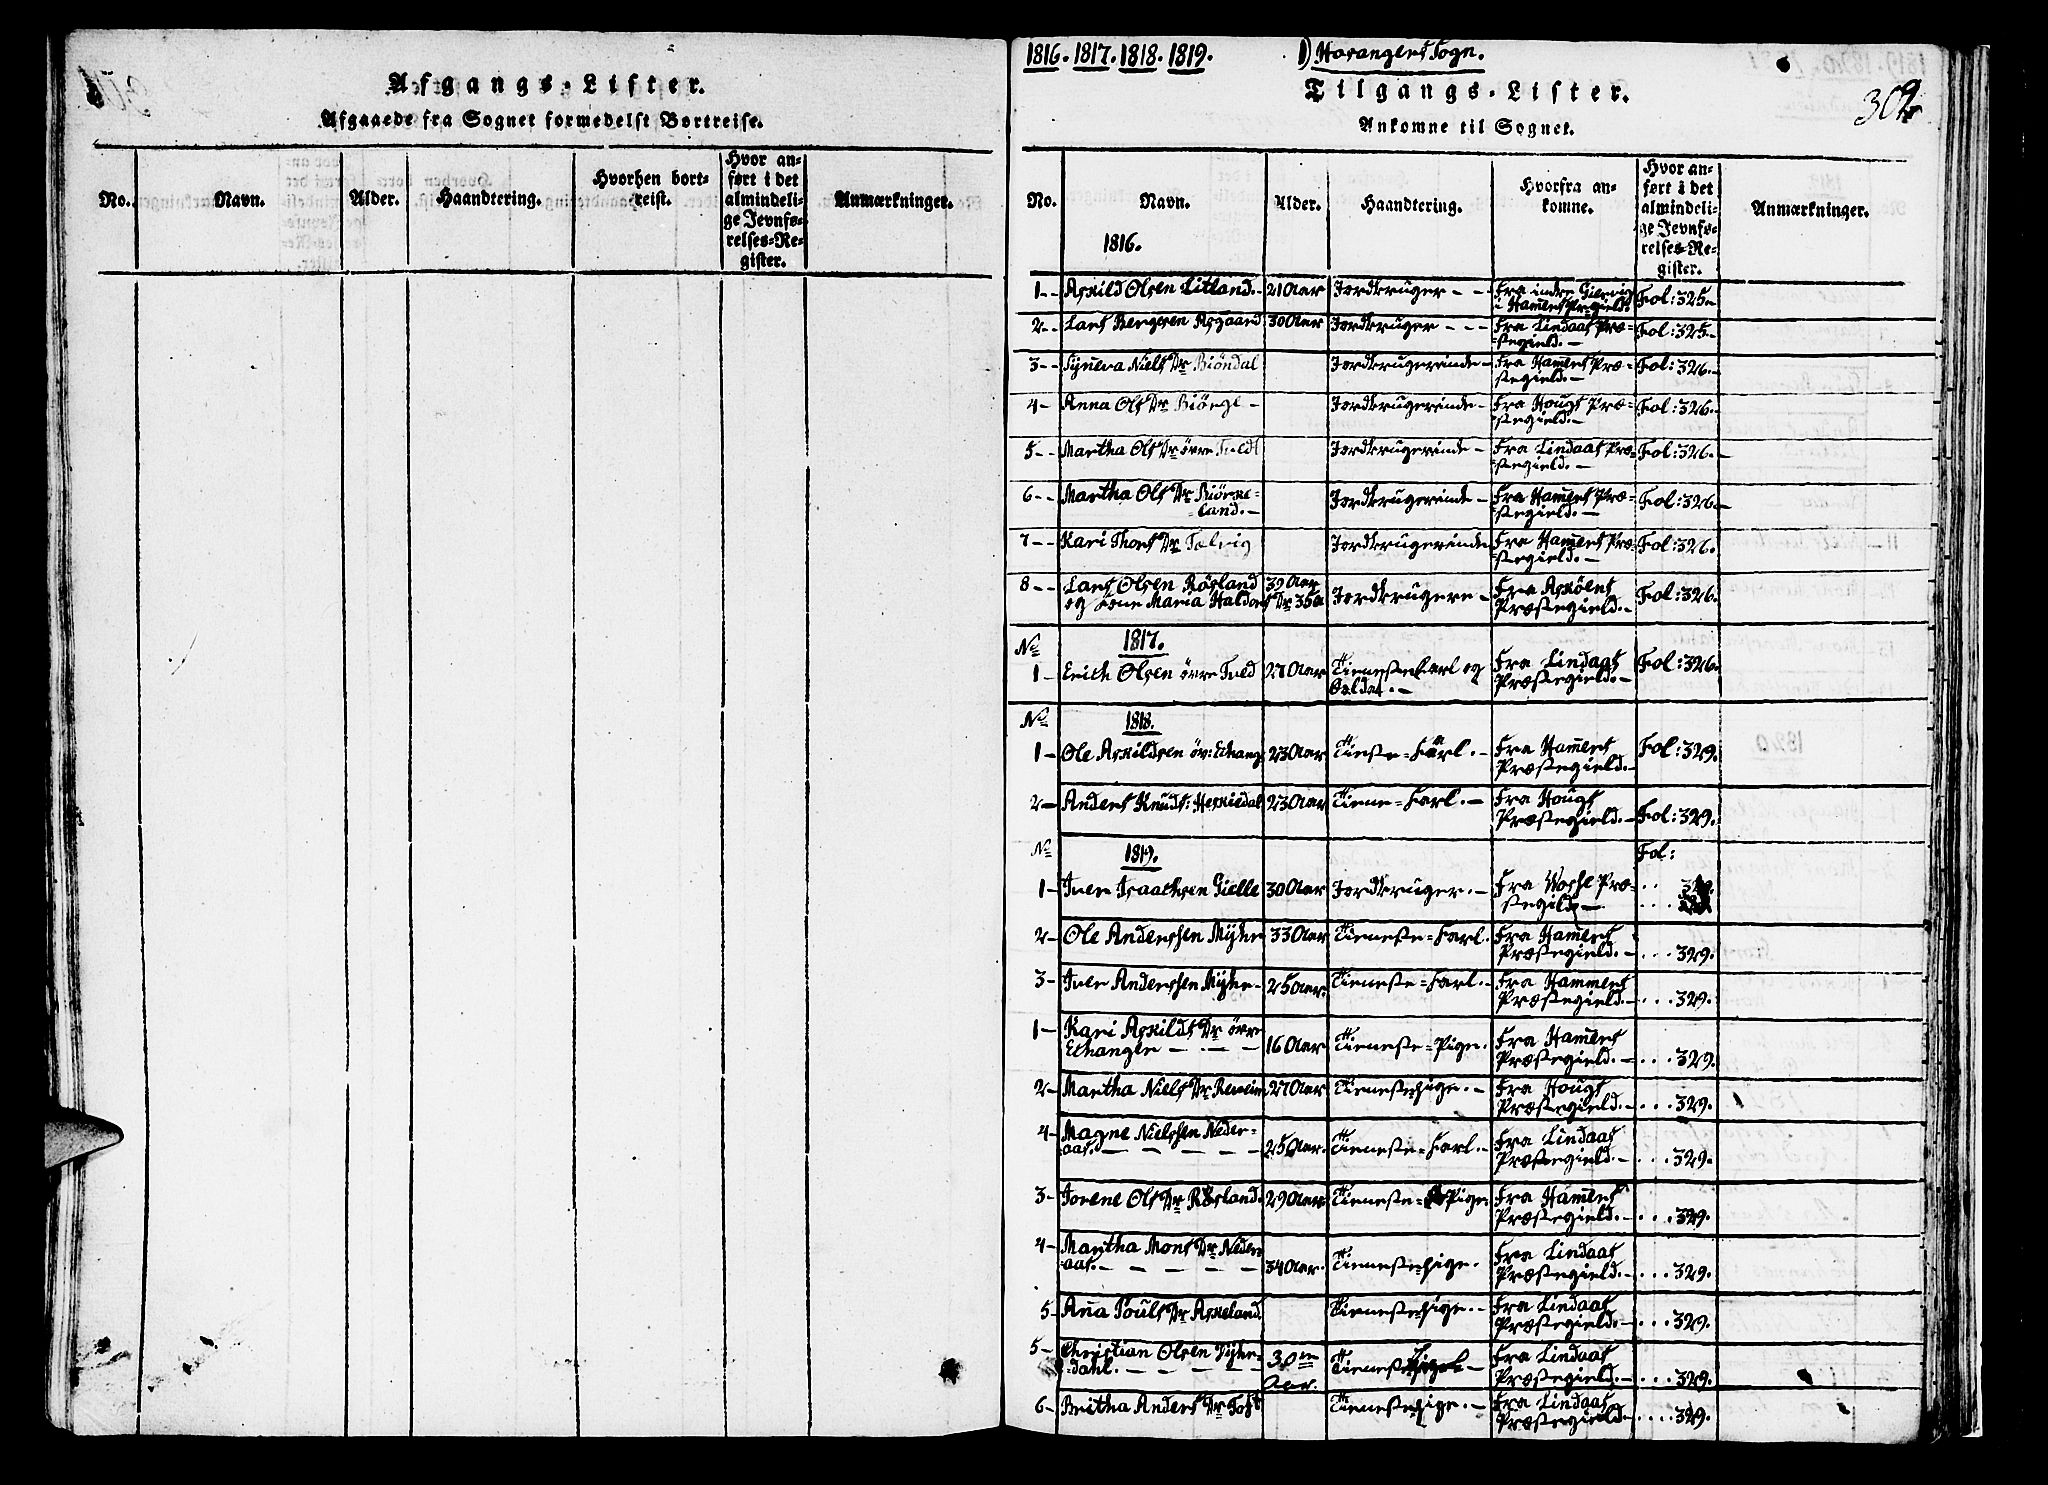 Afgangs-Lister.
Afgaaede fra Sognet formedelst Bortreise.
No. Navn. Alder. Haandtering. Hvorhen bortreist. Hvor anført i det almindelige Jevnførelses-Register. Anmærkninger.
1816. 1817. 1818. 1819. 1) Hosangers Sogn.
Tilgangs-Lister. 302
Ankomne til Sognet.
No. Navn. Alder. Haandtering. Hvorfra ankomne. Hvor anført i det almindelige Jevnførelses-Register. Anmærkninger.
1816.
1-- Askild Olsen Litland.- 21 Aar Jordbruger - - Fra indre
i Hammers Præstegield. Fol: 325.-
2-- Lars Bergesen Asgaard 30 Aar Jordbruger - - - Fra Lindaas Præ=
=stegield.- Fol: 325.-
3-- Synneva Niels Dr Biöndal Jordbrugerinde- Fra Hamers Præ=
=stegield.- Fol: 326.-
4- Anna Ols Dr Biörge - Jordbrugerinde- Fra Hougs Præ=
=stegield.- Fol: 326.
5-- Martha Ols Dr övre Tveld Jordbrugerinde- Fra Lindaas Præ=
=stegield.- Fol: 326.-
6-- Martha Ols Dr Biörke=
=land.- Jordbrugerinde- Fra Hamers Præ=
=stegield.- Fol: 326.-
7-- Kari Thors Dr Jordbrugerinde Fra Hamers Præ=
=stegield.- Fol: 326.
8-- Lars Olsen Rösland 39 Aar
og Kone Maria Haldors Dr 35 A Jordbrugere- Fra Askøens
Præstegield.- Fol: 326.
No 1817.
1- Erich Olsen övre Tveld 27 Aar Tienestekarl og
Soldat.- Fra Lindaas
Præstegield.- Fol: 326.
No 1818.
1- Ole Askildsen öv: Echang: 23 Aar Tieneste=Karl.- Fra Hamers
Præstegield.- Fol: 329.
2- Anders Knuds: Heskiedal 23 Aar Tiene=Karl.- Fra Hougs
Præstegield.- Fol: 329.
No 1819. Fol:
1- Iver Isaachsen Gielle 30 Aar Jordbruger.- Fra Præ=
=stegield.- .. 329.
2- Ole Anderssen Myhre 33 Aar Tieneste=Karl. Fra Hamers
Præstegield.- ... 329.
3- Iver Anderssen Myhre- 25 Aar. Tieneste=Karl.- Fra Hammers
Præstegield.- ... 329.
1- Kari Askilds Dr övre
Echanger - - - 16 Aar Tieneste=Pige. Fra Hamers
Præstegield.- ... 329.
2- Martha Niels Dr Reveim 27 Aar Tienestepige.- Fra Hougs
Præstegield.- ... 329.
4- Magne Nielssen Neder=
aas.- - - - - 25 Aar. Tieneste=Karl.- Fra Lindaas
Præstegield.- ... 329.
3- Jorene Ols Dr Rösland. 29 Aar. Tieneste=Pige. Fra Hamers
Præstegield.- ... 329.
4- Martha Mons Dr Neder=
aas.- - - - - 34 Aar. Tienestepige. Fra Lindaas
Præstegield.- ... 329.
5- Ana Pouls Dr Askeland. Tienestepige.- Fra Lindaas
Præstegield.- ... 329.
5- Christian Olsen
=dahl.- - - 30 Aar. Fra Lindaas
Præstegield.- ... 329.
6- Britha Anders Dr Toft Tienestepige.- Fra Lindaas
Præstegield.- ... 329.